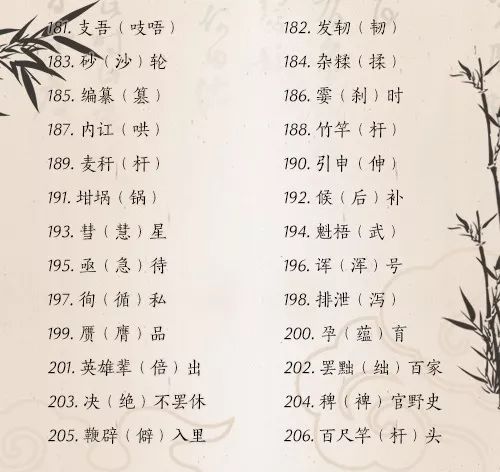 181. 支吾（吱唔）
182. 发轫（韧）
183. 砂（沙）轮
184. 杂糅（揉）
185. 编纂（篡）
186. 霎（刹）时
187. 内讧（哄）
188. 竹竿（杆）
189. 麦秆（杆）
190. 引申（伸）
191. 坩埚（锅）
192. 候（后）补
193. 彗（慧）星
194. 魁梧（武）
195. 亟（急）待
196. 诨（浑）号
197. 徇（循）私
198. 排泄（泻）
199. 赝（膺）品
200. 孕（蕴）育
201. 英雄辈（倍）出
202. 罢黜（绌）百家
203. 决（绝）不罢休
204. 稗（裨）官野史
205. 鞭辟（僻）入里
206. 百尺竿（杆）头